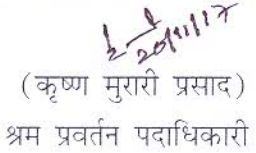 20/11/17
(कृष्ण मुरारी प्रसाद)
श्रम प्रवर्तन पदाधिकारी